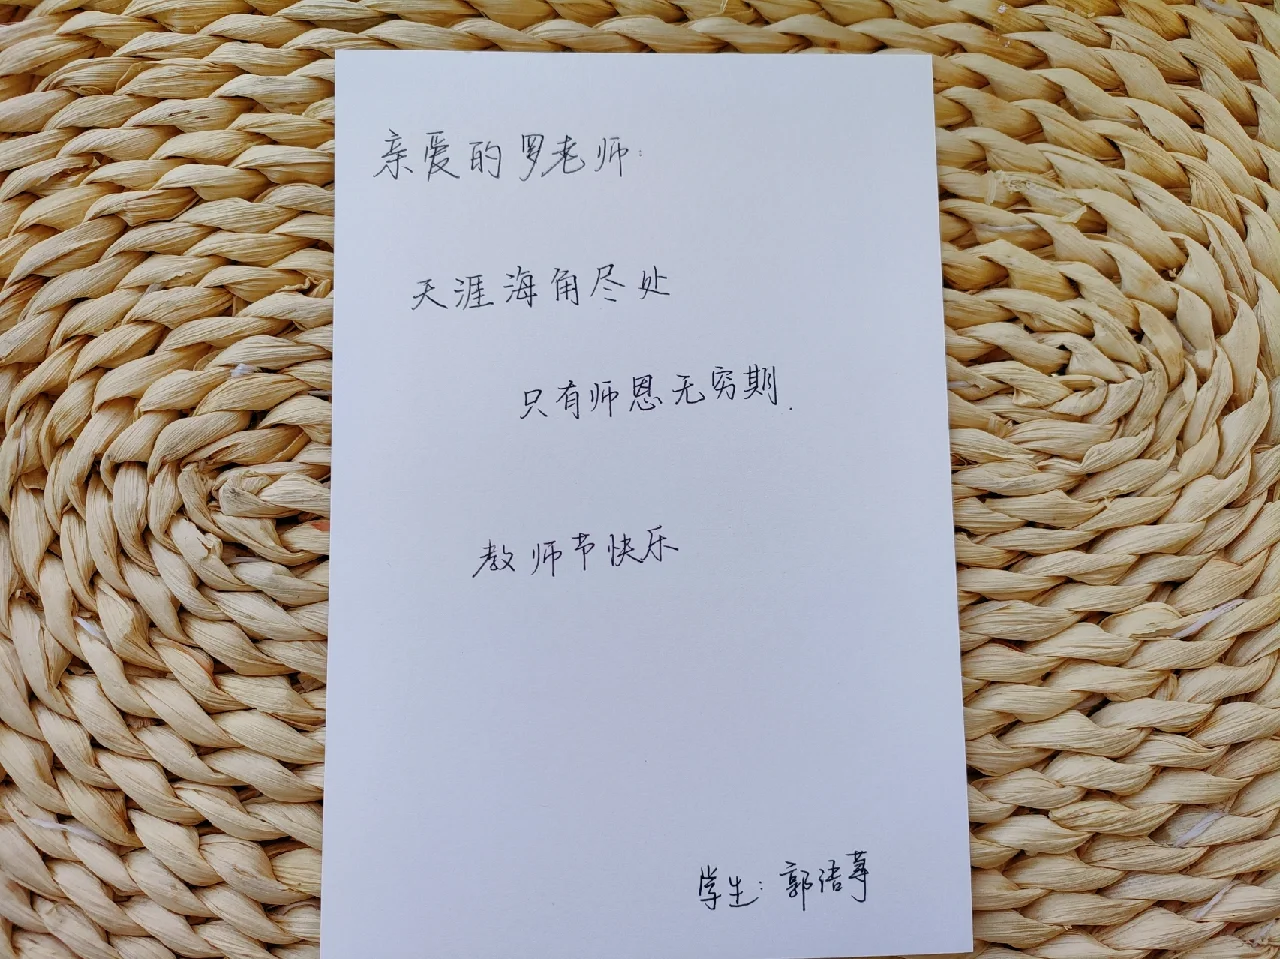 亲爱的罗老师:
天涯海角尽处
只有师恩无穷期.
教师节快乐
学生:郭语